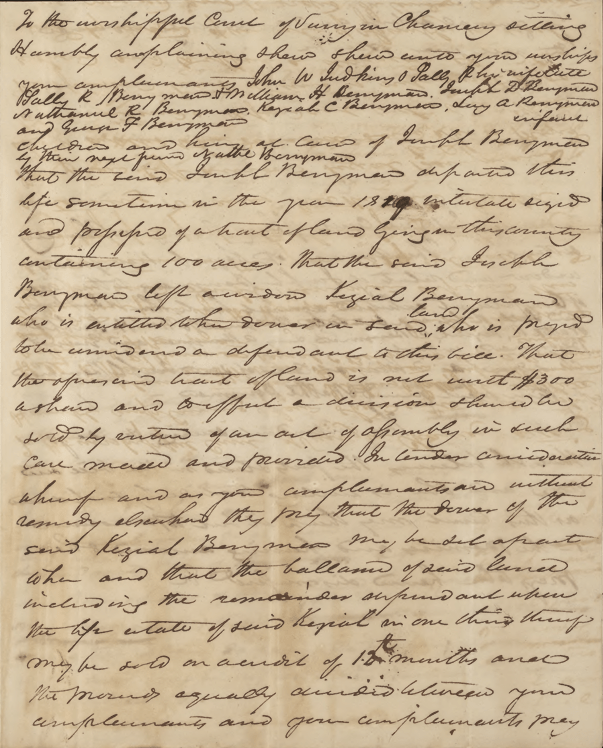 To the worshipful Court of Surry in Chancery sitting
Humbly complaining shew unto your worships
your complainants John W Judkins & Sally R his wife late
Sally R Berryman & William H Berryman, Joseph D Berryman
Nathaniel R Berryman, Keziah C Berryman, Lucy A Berryman
and George F Berryman infant
children and heirs at Law of Joseph Berryman
by their next friend Berryman
That the said Joseph Berryman departed this
life sometime in the year intestate seized
and possessed of a tract of land lying in this county
containing 100 acres. That the said Joseph
Berryman left a widow Keziah Berryman
who is entitled to her dower in said land, who is prayed
to be considered a defendant to this bill. That
the aforesaid tract of land is not worth $300
a share and to effect a division should be
sold by virtue of an act of assembly in such
case made and provided. In tender consideration
whereof and as your complainants are without
remedy elsewhere they pray that the dower of the
said Keziah Berryman may be set apart
to her and that the ballance of said land
including the remainder dependant upon
the life estate of said Keziah in one third thereof
may be sold on a credit of 12 months and
the proceeds equally divided between your
complainants and your complainants pray